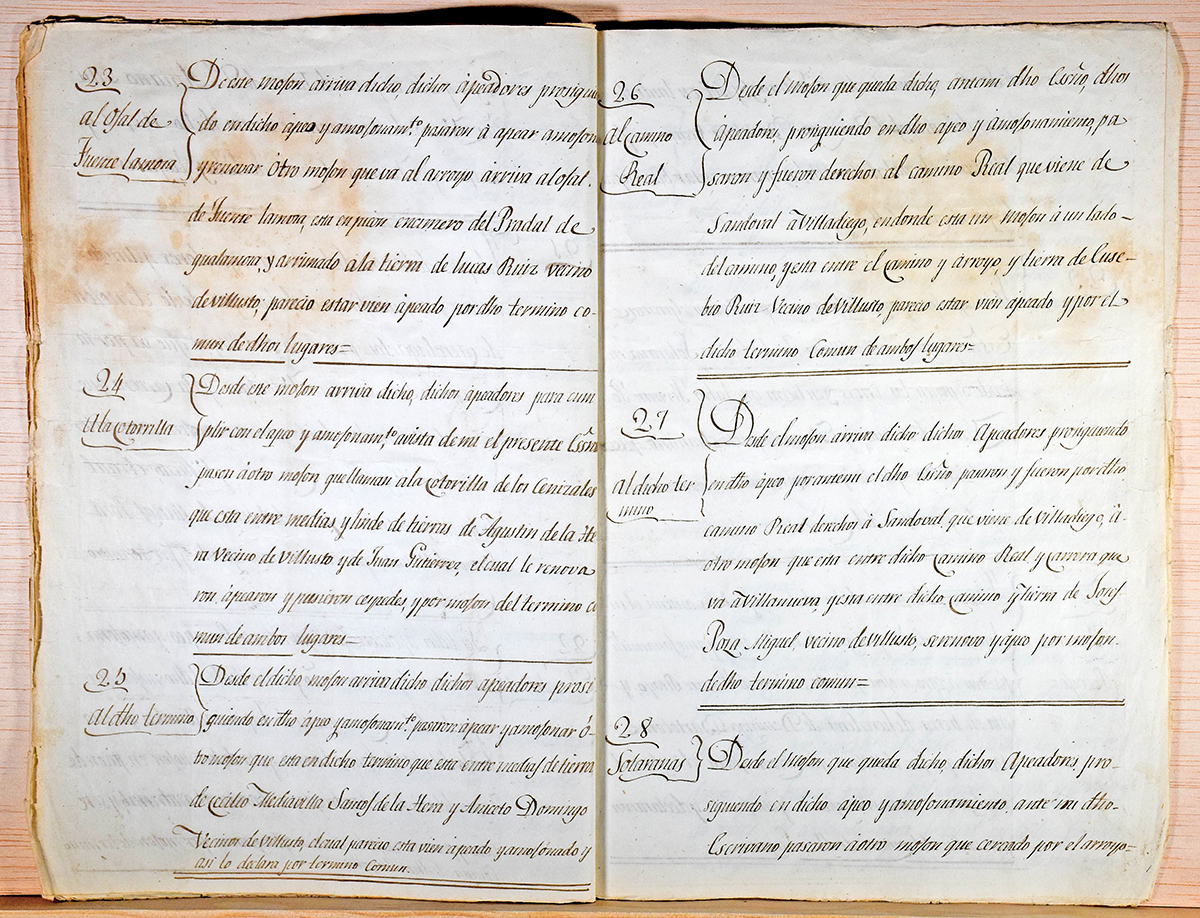 23
al Osal de
Fuente lamora
Deeste mojon arriva dicho, dichos àpeadores prosiguien
do en dicho àpeo y amojonam.to pasaron à apear amojonar
y renovar òtro mojon que va al arroyo arriva al osal.
de fuente lamora, esta en pie en encimero del Pradal de
gualamora, y arrimado à la tierra de lucas Ruiz vecino
de villusto, parecio estar vien àpeado por dho termino co-
mun de dhos lugares=
24
A la Cotorrilla
Desde este mojon arriva dicho, dichos àpeadores para cum
plir con el apeo y amojonam.to avista de mi el presente Essno
pasen à òtro mojon que llaman a la Cotorilla de los Cenizales
que esta entre medias, y linde de tierras de Agustin de la He
ra Vecino de Villusto y de Juan Gutierrez, el cual le renova
ron, àpearon y pusieron cespedes, y por mojon del termino co
mun de ambos lugares=
25
Al dho termino
Desde el dicho mojon arriva dicho dichos àpeadores prosi
guiendo en dho àpeo y amojonam.to pasaron àpear y amojonar ó-
tro mojon que esta en dicho termino que esta entre medias de tierra
de Cecilio Mediavilla Santos de la Hera y Aniceto Domingo
Vecinos de Villusto, el cual parecio esta vien àpeado y amojonado y
asi lo declara por termino Comun.
26
Al Camino
Real
Desde el mojon que queda dicho, antemi dho Essño, dhos
Apeadores, prosiguiendo en dho àpeo y àmojonamiento, pa
saron y fueron derechos al camino Real que viene de
Sandoval à Villadiego, en donde esta un mojon à un lado-
del camino, y esta entre el Camino y arroyo, y tierra de Euse-
bio Ruiz Vecino de Villusto, parecio estar vien àpeado y por el
dicho termino Comun de ambos lugares=
27
Al dicho ter
mino
Desde el mojon arriva dicho dichos Apeadores prosiguiendo
en dho àpeo por antemi el dho Essño pasaron y fueron por dho
camino Real derechos à Sandoval, que viene de Villadiego, à-
otro mojon que esta entre dicho Camino Real y Carrera que
va à Villanueva, y esta entre dicho, Camino y tierra de Josef
Poza Miguel, vecino de Villusto, se renovo y àpeo por mojon-
de dho termino comun=
28
Solaranas
Desde el Mojon que queda dicho, dichos Apeadores, pro-
siguiendo en dicho àpeo y amojonamiento ante mi dho-
Escrivano pasaron à òtro mojon que cercado por el arroyo=